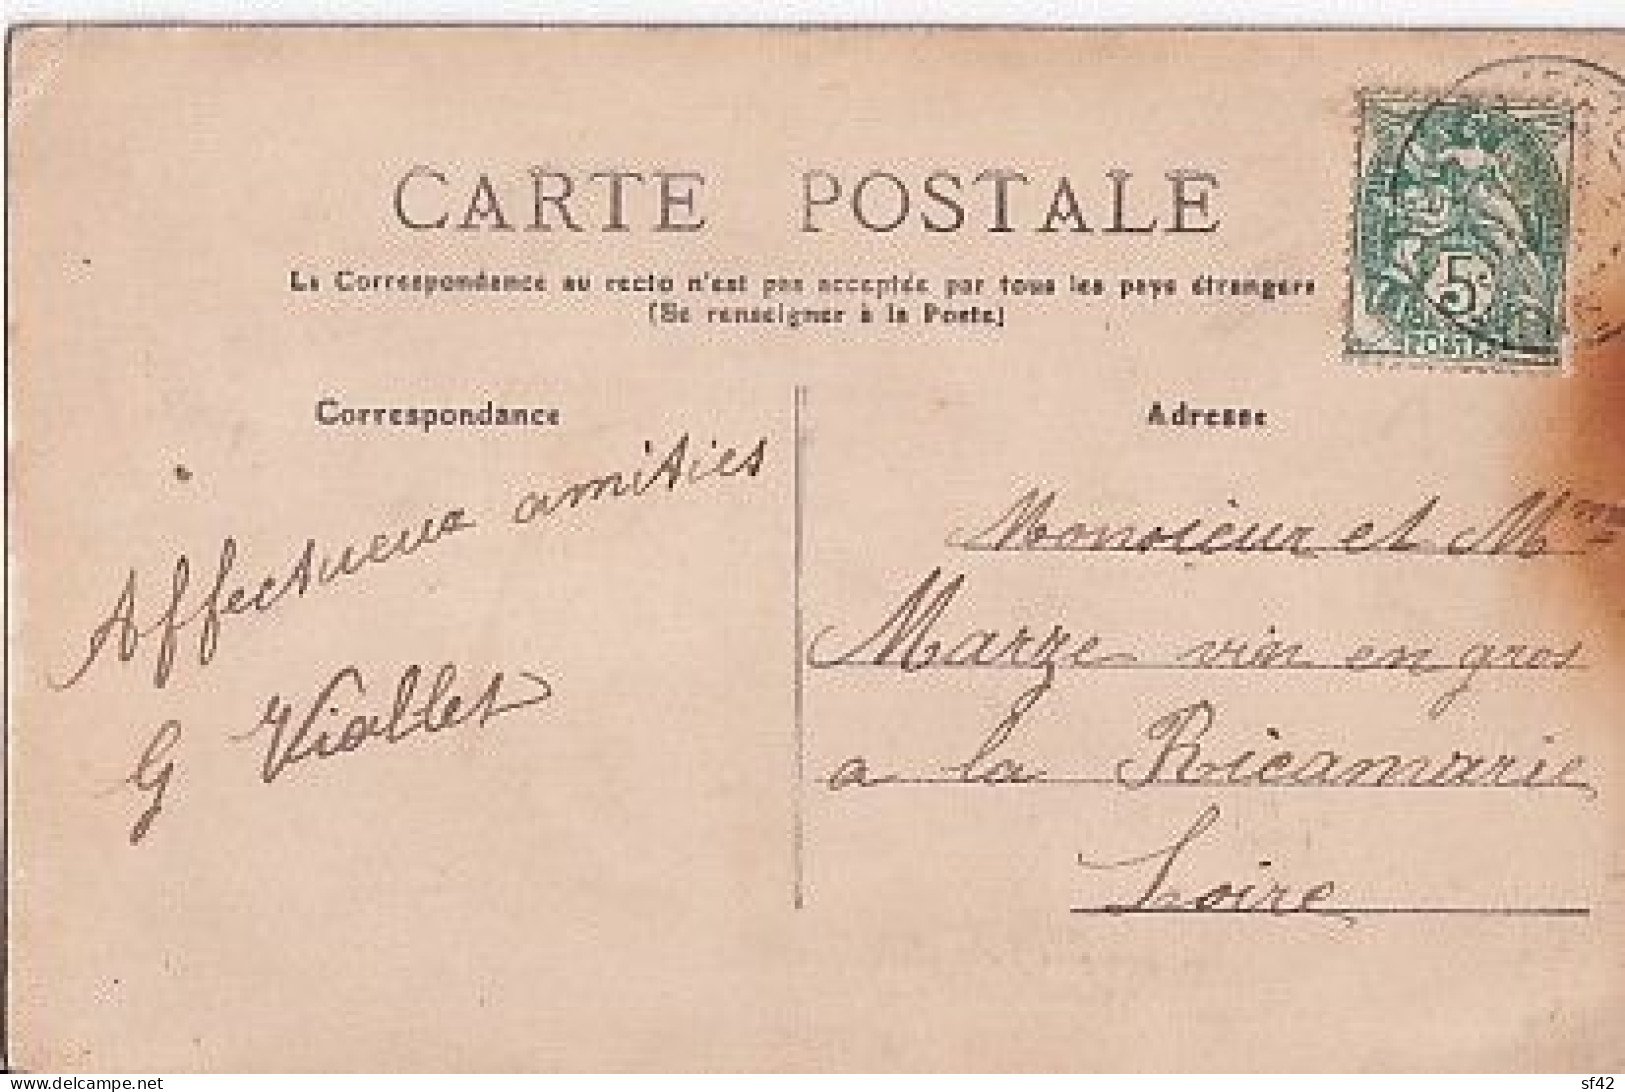 CARTE POSTALE
La Correspondance au recto n'est pas acceptée par tous les pays étrangers
(Se renseigner à la Poste)
Correspondance
Affectueux amitiés
G Viallet
Adresse
5c
POSTES
Monsieur et Mme
Marze vin en gros
a la Ricamarie
Loire
delcampe.net
sf42